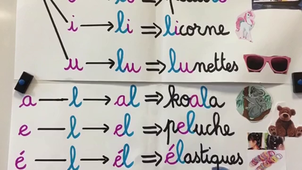 i → li ⇒ licorne
u → lu ⇒ lunettes
a — l → al ⇒ koala
e — l → el ⇒ peluche
é — l → él ⇒ élastiques